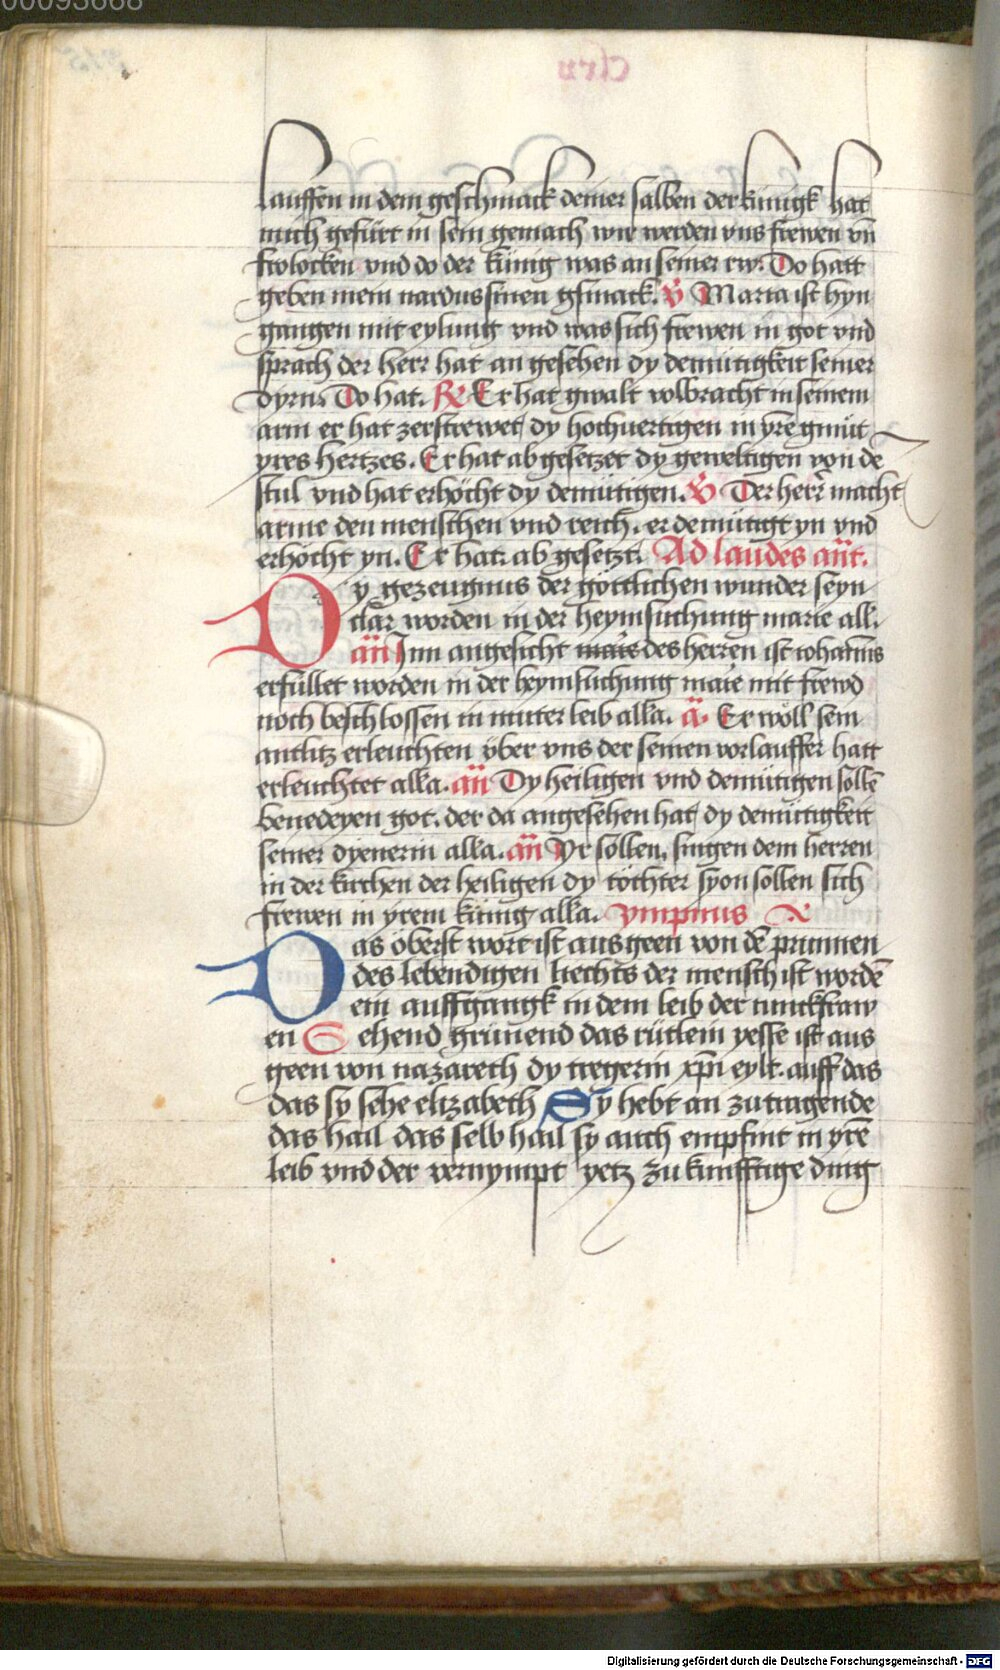 00093668
lauffen in dem geschmack deiner salben der künigk hat
mich gefürt in sein gemach wir werden vns frewen vn̄
frolocken vnd do der künig was an seiner rw. Do hatt
geben mein nardus sinen gsmack. V̄ Maria ist hyn
gangen mit eylung vnd was sich frewen in got vnd
sprach der herr hat an gesehen dy demütigkeit seiner
dyrn. Do hat. R Er hat gwalt volbracht in seinem
arm er hat zerstrewet dy hochuertigen in yrē gmüt
yres hertzes. Er hat ab gesetzet dy geweltigen von de
stul vnd hat erhöcht dy demütigen. V̄ Der herr macht
arme den menschen vnd reich. er demütigt yn vnd
erhöcht yn. Er hat. ab gesetzt. Ad laudes an̄t.
Dy gezeugnus der göttlichen wunder seyn
clar worden in der heymsuchung marie all.
an̄ Inn angesicht des herren ist iohannis
erfüllet worden in der heymsuchung maie mit frewd
noch beschlossen in muter leib alla. a. Er wöll sein
antlitz erleuchten über vns der seinen vorlauffer hatt
erleuchtet alla. an̄ Dy heiligen vnd demütigen solle
benedeyen got. der da angesehen hat dy demütigkeit
seiner dyenerin alla. an̄ Yr söllen. singen dem herren
in der kirchen der heiligen dy töchter syon sollen sich
frewen in yrem künig alla. ympnus
Das öberst wort ist ausgeen von dē prunnen
des lebendigen liechts der mensch ist wordē
ein auffgangk in dem leib der iunckfraw
en Sehend grünend das rütlein yesse ist aus
geen von nazareth dy tregerin xp̄i eylt. auff das
das sy sehe elizabeth Sy hebt an zu tragende
das hail das selb hail sy auch empfint in yrē
leib vnd der vernympt yetz zu künfftige ding
Digitalisierung gefördert durch die Deutsche Forschungsgemeinschaft - DFG